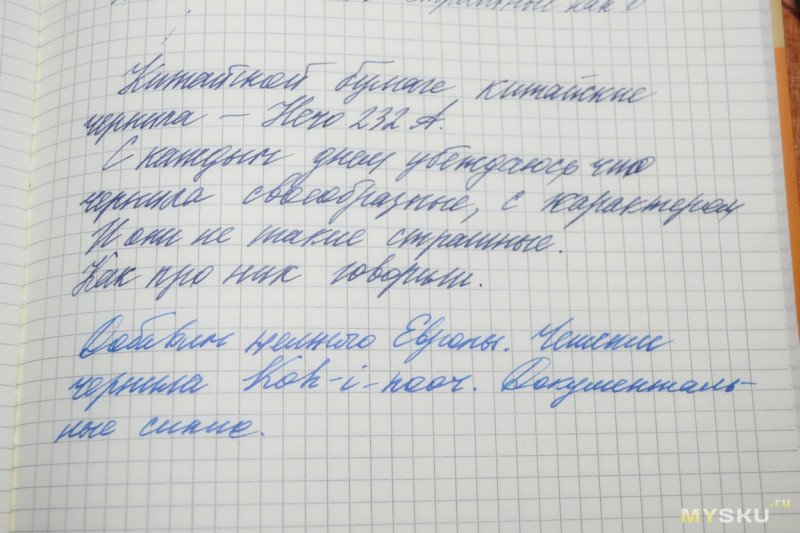 страшный как о
Китайской бумаге китайские
чернила – Hero 232 А.
С каждым днем убеждаюсь, что
чернила своеобразные, с характером
И они не такие страшные.
Как про них говорили.
Добавим немного Европы. Чешские
чернила Koh-i-noor. Документаль-
ные синие.
MYSKU.ru